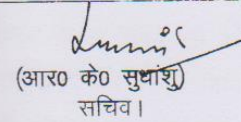 (आर0 के0 सुधांशु)
सचिव।